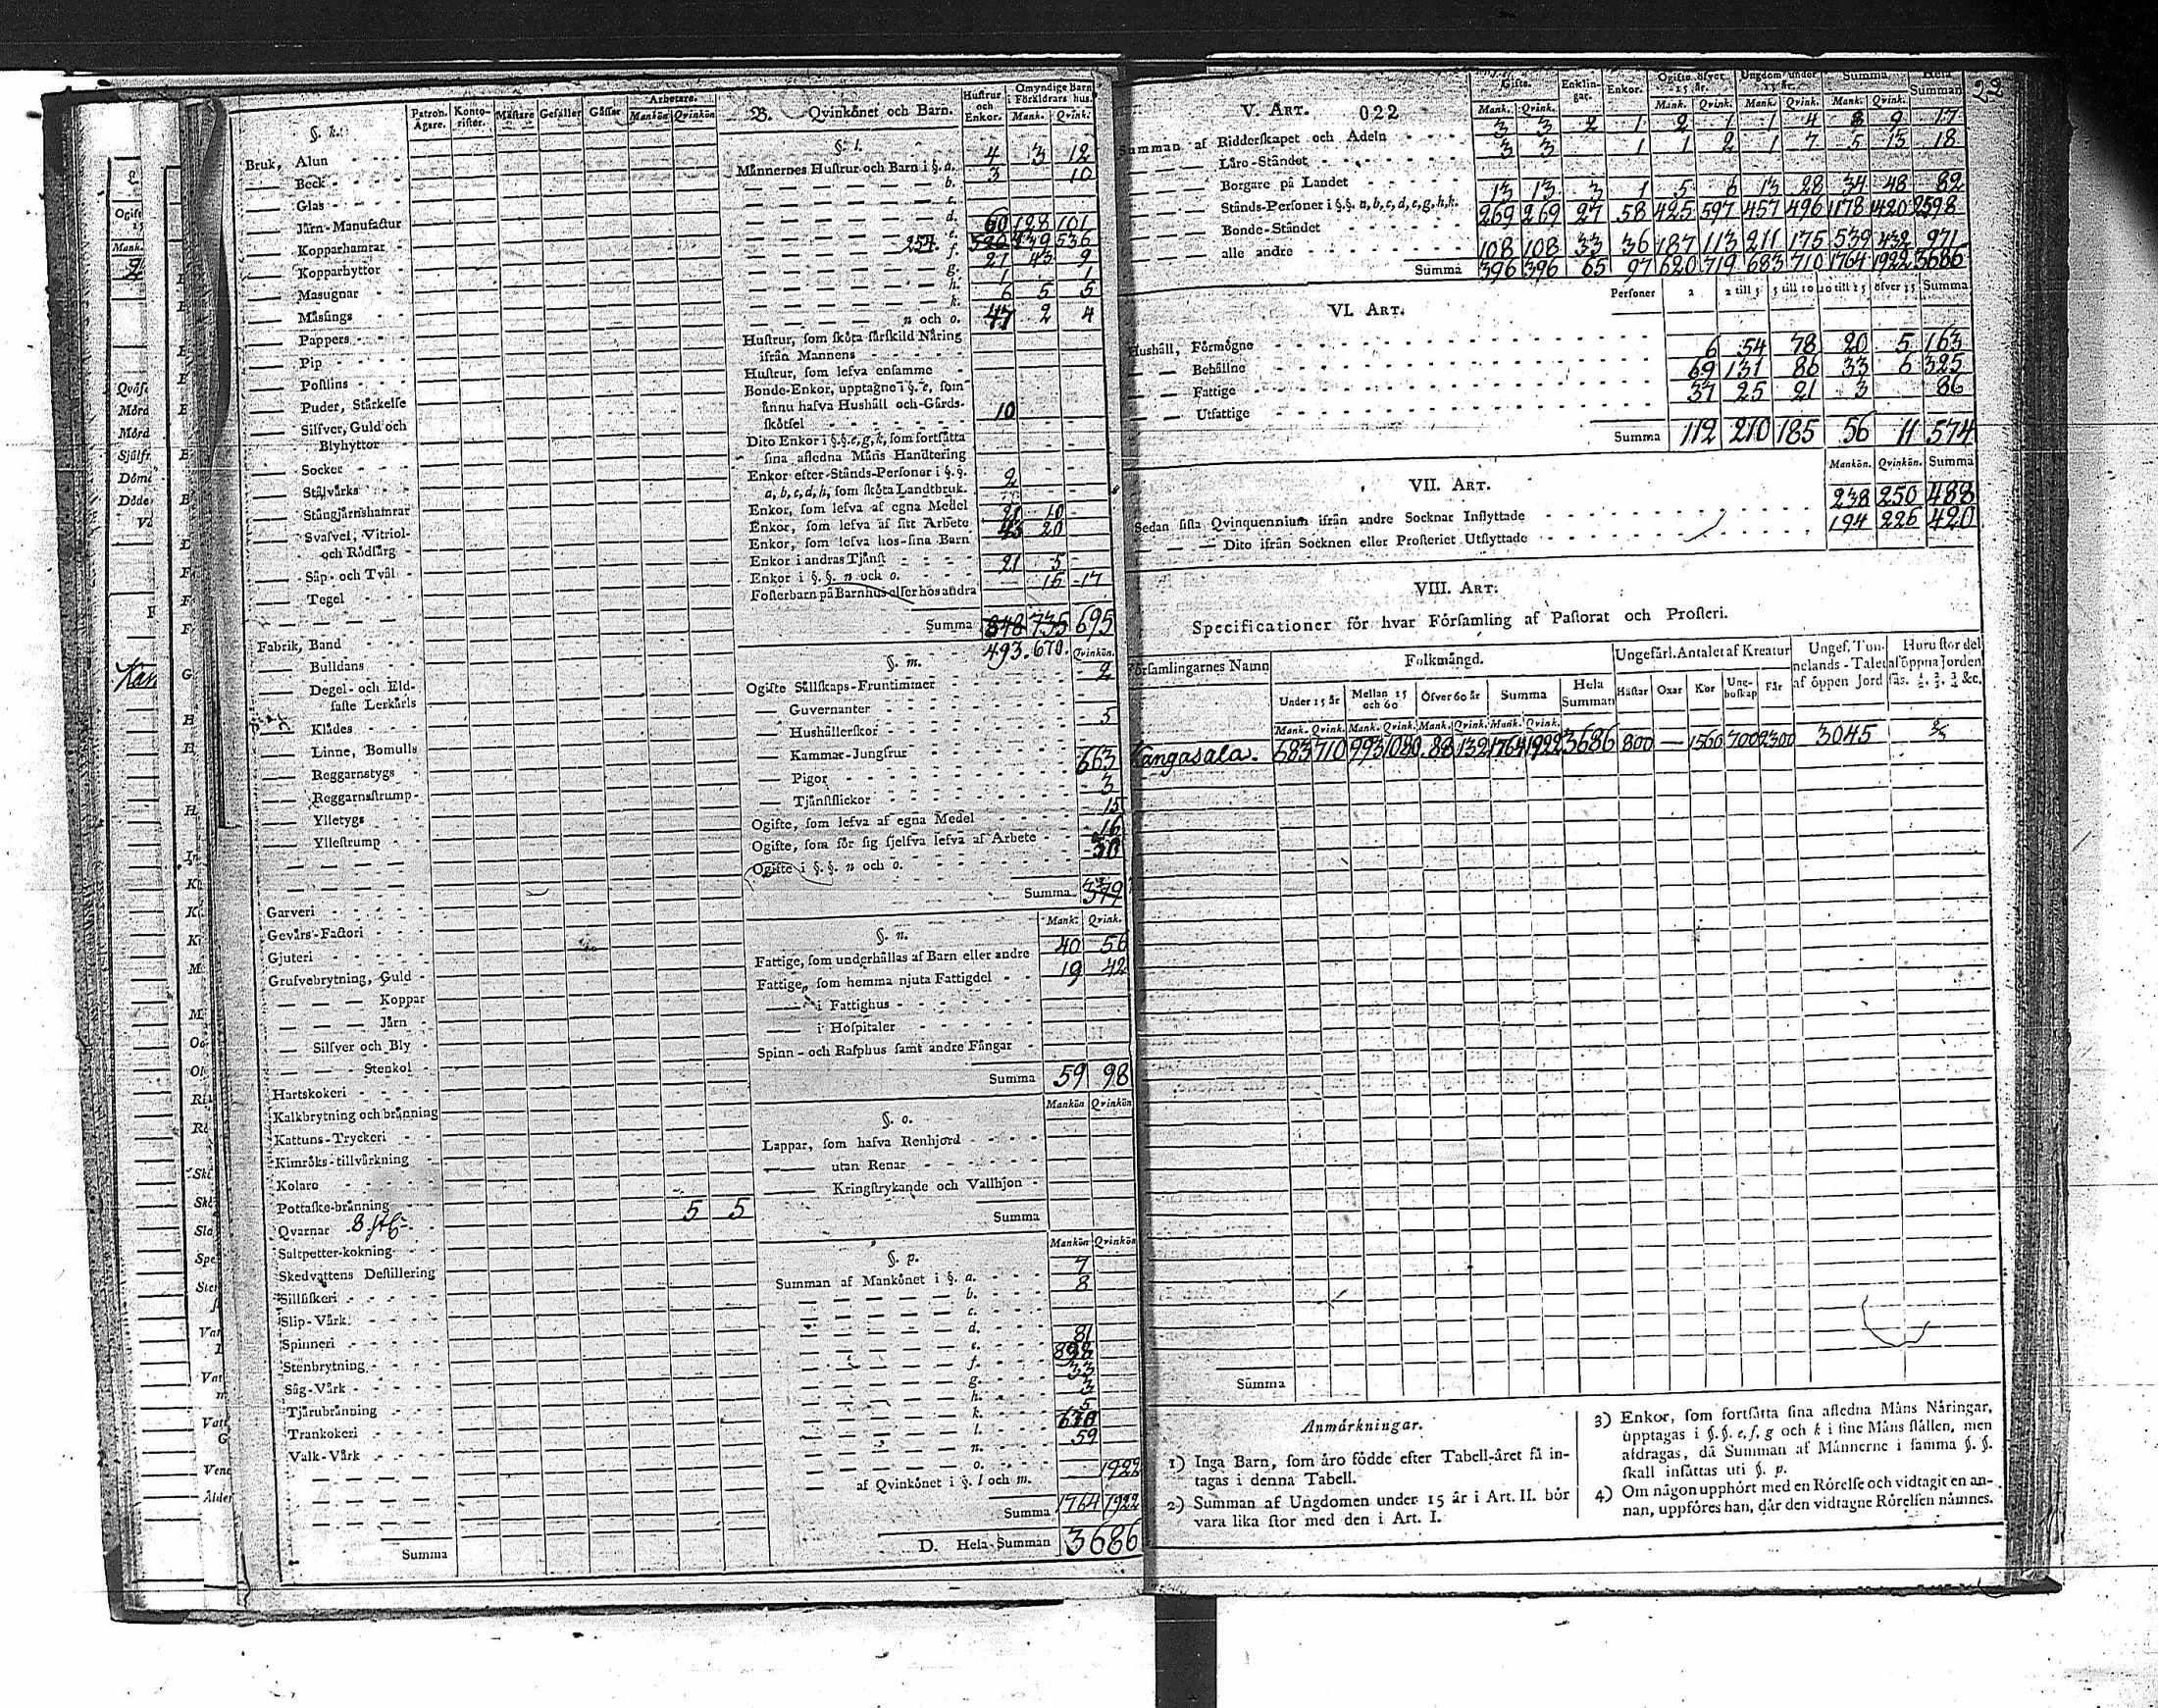 §. k.
Patron. Ägare.
Konto-ristor.
Mästare
Gesäller
Gåssar
Arbetare.
Mankön Qvinkön
Bruk, Alun
Beck
Glas
Järn-Manufactur
Kopparhamrar
Kopparhyttor
Masugnar
Mässings
Pappers
Pip
Postlins
Puder, Stärkelse
Silfver, Guld och
Blyhyttor
Socker
Stålvärks
Stångjärnshamrar
Svafvel, Vitriol-
och Rödfärg
Såp- och Tvål
Tegel
Fabrik, Band
Bulldans
Degel- och Eld-
faste Lerkärls
Klädes
Linne, Bomulls
Reggarnstygs
Reggarnstrump
Ylletygs
Yllestrump
Garveri
Gevärs-Factori
Gjuteri
Grufvebrytning, Guld
Koppar
Järn
Silfver och Bly
Stenkol
Hartskokeri
Kalkbrytning och bränning
Kattuns-Tryckeri
Kimröks-tillvärkning
Kolare
Pottaske-bränning
Qvarnar 8 st. 5 5
Saltpetter-kokning
Skedvattens Destillering
Sillfiskeri
Slip-Värk
Spinneri
Stenbrytning
Såg-Värk
Tjärubränning
Trankokeri
Valk-Värk
Summa
B. Qvinkönet och Barn.
Hustrur och Enkor.
Omyndige Barn i Föräldrars hus.
Mank. Qvink.
§. l.
Männernes Hustrur och Barn i §. a. 4 3 12
b. 3 10
c.
d. 60 128 101
e. 254. 536
f. 21 43 9
g. 1 1
h. 6 5 5
k.
n och o. 47 2 4
Hustrur, som sköta särskild Näring
ifrån Mannens
Hustrur, som lefva ensamme
Bonde-Enkor, upptagne i §. e, som
ännu hafva Hushåll och Gårds-
skötsel 10
Dito Enkor i §.§. e, g, k, som fortsätta
sina afledna Mäns Handtering
Enkor efter Stånds-Personer i §.§.
a, b, c, d, h, som sköta Landtbruk. 2
Enkor, som lefva af egna Medel
Enkor, som lefva af sitt Arbete 21 10
Enkor, som lefva hos sina Barn 43 20
Enkor i andras Tjänst
Enkor i §.§. n och o. 21 5
Fosterbarn på Barnhus eller hos andra 15 17
Summa 848 735 695
493. 670.
§. m.
Qvinkön.
Ogifte Sällskaps-Fruntimmer 2
Guvernanter
Hushållerskor 5
Kammar-Jungfrur
Pigor 663
Tjänstflickor 3
Ogifte, som lefva af egna Medel 15
Ogifte, som för sig sjelfva lefva af Arbete 16
Ogifte i §.§. n och o. 30
Summa
§. n.
Mank. Qvink.
Fattige, som underhållas af Barn eller andre 40 56
Fattige, som hemma njuta Fattigdel 19 42
i Fattighus
i Hospitaler
Spinn- och Rasphus samt andre Fångar
Summa 59 98
§. o.
Mankön Qvinkön
Lappar, som hafva Renhjord
utan Renar
Kringstrykande och Vallhjon
Summa
§. p.
Mankön Qvinkön
Summan af Mankönet i §. a. 7
b. 8
c.
d. 81
e.
f. 33
g. 3
h. 5
k.
l. 670
n. 59
o.
af Qvinkönet i §. l och m. 1922
Summa 1764 1922
D. Hela Summan 3686
V. Art. 022
22
Gifte. Enklin-gar. Enkor. Ogifte öfver 15 år. Ungdom under 15 år. Summa Hela Summan
Mank. Qvink. Mank. Qvink. Mank. Qvink. Mank. Qvink.
Summan af Ridderskapet och Adeln 3 3 2 1 2 1 1 4 8 9 17
Läro-Ståndet 3 3 1 1 2 1 7 5 13 18
Borgare på Landet
Stånds-Personer i §.§. a, b, c, d, e, g, h, k. 13 13 3 1 5 6 13 28 34 48 82
Bonde-Ståndet 269 269 27 58 425 597 457 496 1178 1420 2598
alle andre 108 108 33 36 187 113 211 175 539 432 971
Summa 396 396 65 97 620 719 683 710 1764 1922 3686
VI. Art.
Personer 2 2 till 5 5 till 10 10 till 15 öfver 15 Summa
Hushåll, Förmögne 6 54 78 20 5 163
Behållne 69 131 86 33 6 325
Fattige 37 25 21 3 86
Utfattige
Summa 112 210 185 56 11 574
VII. Art.
Mankön. Qvinkön. Summa
Sedan sista Qvinquennium ifrån andre Socknar Inflyttade 238 250 488
Dito ifrån Socknen eller Prosteriet Utflyttade 194 226 420
VIII. Art.
Specificationer för hvar Församling af Pastorat och Prosteri.
Församlingarnes Namn
Folkmängd.
Ungefärl. Antalet af Kreatur
Ungef. Tun-nelands-Talet af öppen Jord
Huru stor del af öppna Jorden sås. ½. ⅔. ¾ &c.
Under 15 år Mellan 15 och 60 Öfver 60 år Summa Hela Summan Hästar Oxar Kor Ung-boskap Får
Mank. Qvink. Mank. Qvink. Mank. Qvink. Mank. Qvink.
Kangasala. 683 710 993 1080 88 132 1764 1922 3686 800 — 1560 700 2300 3045
Summa
Anmärkningar.
1) Inga Barn, som äro födde efter Tabell-året få in-
tagas i denna Tabell.
2) Summan af Ungdomen under 15 år i Art. II. bör
vara lika stor med den i Art. I.
3) Enkor, som fortsätta sina afledna Mäns Näringar,
upptagas i §.§. e, f, g och k i sine Mäns ställen, men
afdragas, då Summan af Männerne i samma §.§.
skall insättas uti §. p.
4) Om någon upphört med en Rörelse och vidtagit en an-
nan, uppföres han, där den vidtagne Rörelsen nämnes.